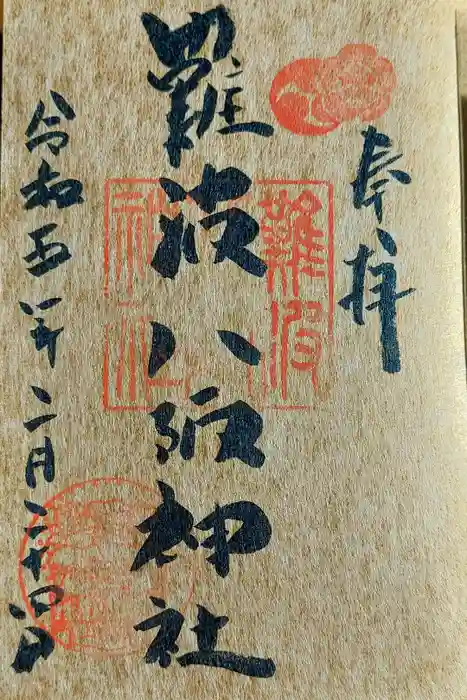 奉拝
難波八阪神社
令和五年二月二十四日
難波
神社